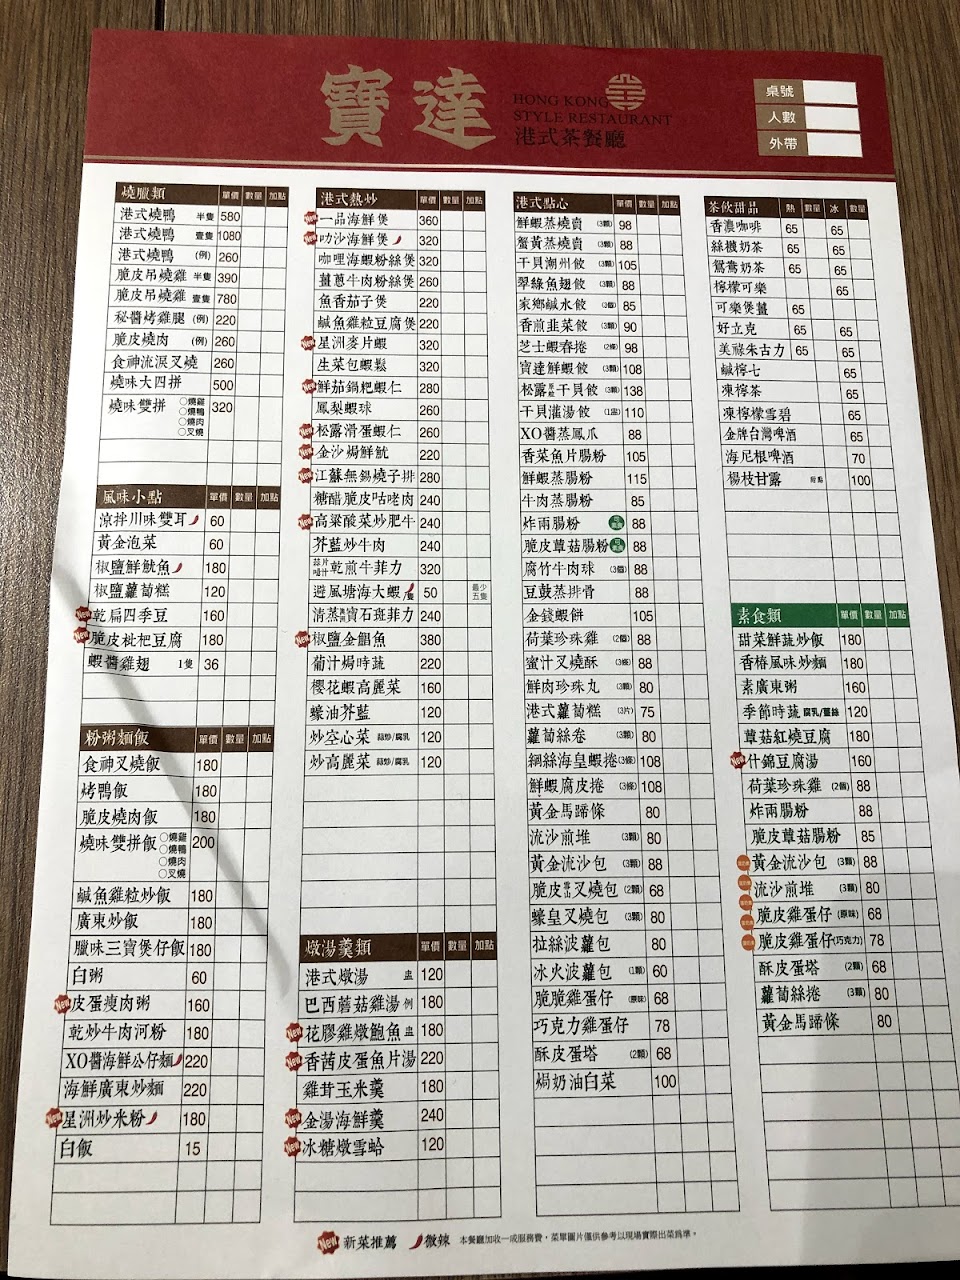 寶達
HONG KONG
STYLE RESTAURANT
港式茶餐廳
桌號
人數
外帶
燒臘類 單價 數量 加點
港式燒鴨 半隻 580
港式燒鴨 壹隻 1080
港式燒鴨 (例) 260
脆皮吊燒雞 半隻 390
脆皮吊燒雞 壹隻 780
秘醬烤雞腿 (例) 220
脆皮燒肉 (例) 260
食神流淚叉燒 260
燒味大四拼 500
燒味雙拼 ○燒雞 ○燒鴨 ○燒肉 ○叉燒 320
風味小點 單價 數量 加點
涼拌川味雙耳 60
黃金泡菜 60
椒鹽鮮魷魚 180
椒鹽蘿蔔糕 120
New 乾扁四季豆 160
New 脆皮枇杷豆腐 180
蝦醬雞翅 1隻 36
粉粥麵飯 單價 數量 加點
食神叉燒飯 180
烤鴨飯 180
脆皮燒肉飯 180
燒味雙拼飯 ○燒雞 ○燒鴨 ○燒肉 ○叉燒 200
鹹魚雞粒炒飯 180
廣東炒飯 180
臘味三寶煲仔飯 180
白粥 60
New 皮蛋瘦肉粥 160
乾炒牛肉河粉 180
XO醬海鮮公仔麵 220
海鮮廣東炒麵 220
New 星洲炒米粉 180
白飯 15
港式熱炒 單價 數量 加點
New 一品海鮮煲 360
New 叻沙海鮮煲 320
咖哩海蝦粉絲煲 320
薑蔥牛肉粉絲煲 260
魚香茄子煲 220
鹹魚雞粒豆腐煲 220
New 星洲麥片蝦 320
生菜包蝦鬆 320
New 鮮茄鍋粑蝦仁 280
鳳梨蝦球 260
New 松露滑蛋蝦仁 260
New 金沙焗鮮魷 220
New 江蘇無錫燒子排 280
糖醋脆皮咕咾肉 240
New 高粱酸菜炒肥牛 240
芥藍炒牛肉 240
蒜片 乾煎牛菲力 320
避風塘海大蝦 /隻 50 最少五隻
清蒸寶石斑菲力 240
New 椒鹽金錩魚 380
葡汁焗時蔬 220
櫻花蝦高麗菜 160
蠔油芥藍 120
炒空心菜 蒜炒/腐乳 120
炒高麗菜 蒜炒/腐乳 120
燉湯羹類 單價 數量 加點
港式燉湯 盅 120
巴西蘑菇雞湯 例 180
New 花膠雞燉鮑魚 盅 180
New 香茜皮蛋魚片湯 220
雞茸玉米羹 180
New 金湯海鮮羹 240
New 冰糖燉雪蛤 120
港式點心 單價 數量 加點
鮮蝦蒸燒賣 (3顆) 98
蟹黃蒸燒賣 (3顆) 88
干貝潮州餃 (3顆) 105
翠綠魚翅餃 (3顆) 88
家鄉鹹水餃 (3個) 85
香煎韭菜餃 (3顆) 90
芝士蝦春捲 (2條) 98
寶達鮮蝦餃 (3顆) 108
松露干貝餃 (3顆) 138
干貝灌湯餃 (1盅) 110
XO醬蒸鳳爪 88
香菜魚片腸粉 105
鮮蝦蒸腸粉 115
牛肉蒸腸粉 85
炸兩腸粉 88
脆皮蕈菇腸粉 88
腐竹牛肉球 (3個) 88
豆鼓蒸排骨 88
金錢蝦餅 105
荷葉珍珠雞 (2個) 88
蜜汁叉燒酥 (3條) 88
鮮肉珍珠丸 (3顆) 80
港式蘿蔔糕 (3片) 75
蘿蔔絲卷 (3顆) 80
網絲海皇蝦捲 (3條) 108
鮮蝦腐皮捲 (3條) 108
黃金馬蹄條 80
流沙煎堆 (3顆) 80
黃金流沙包 (3顆) 88
脆皮叉燒包 (2顆) 68
蠔皇叉燒包 (3顆) 80
拉絲波蘿包 80
冰火波蘿包 (1顆) 60
脆脆雞蛋仔 (原味) 68
巧克力雞蛋仔 78
酥皮蛋塔 (2顆) 68
焗奶油白菜 100
茶飲甜品 熱 數量 冰 數量
香濃咖啡 65 65
絲襪奶茶 65 65
鴛鴦奶茶 65 65
檸檬可樂 65
可樂煲薑 65
好立克 65 65
美祿朱古力 65 65
鹹檸七 65
凍檸茶 65
凍檸檬雪碧 65
金牌台灣啤酒 65
海尼根啤酒 70
楊枝甘露 甜點 100
素食類 單價 數量 加點
甜菜鮮蔬炒飯 180
香椿風味炒麵 180
素廣東粥 160
季節時蔬 腐乳/薑絲 120
蕈菇紅燒豆腐 180
New 什錦豆腐湯 160
荷葉珍珠雞 (2個) 88
炸兩腸粉 88
脆皮蕈菇腸粉 85
黃金流沙包 (3顆) 88
流沙煎堆 (3顆) 80
脆皮雞蛋仔 (原味) 68
脆皮雞蛋仔 (巧克力) 78
酥皮蛋塔 (2顆) 68
蘿蔔絲捲 (3顆) 80
黃金馬蹄條 80
New 新菜推薦 微辣 本餐廳加收一成服務費，菜單圖片僅供參考以現場實際出菜為準。